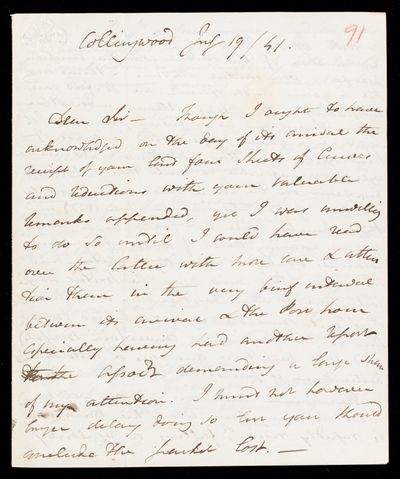 91
Collingwood July 19/41.
Dear Sir — Though I ought to have
acknowledged on the day of its arrival the
receipt of your last four sheets of Curves
and reductions with your valuable
remarks appended, yet I was unwilling
to do so until I could have read
over the latter with more care & atten
tion than in the very brief interval
between its arrival & the Post hour
especially having had another Report
demanding a large share
of my attention. I must not however
longer delay doing so lest you should
conclude the packet lost. —